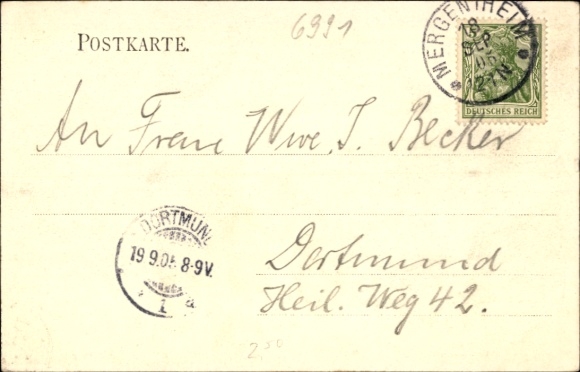 6991
POSTKARTE.
MERGENTHEIM
18
SEP
05
2-7N
DEUTSCHES REICH
An Frau Wwe. J. Becker
DORTMUND
19.9.05 8-9V.
1 a
Dortmund
Heil. Weg 42.
2,50